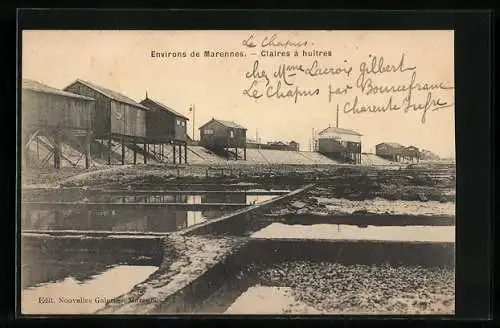 Environs de Marennes. — Claires à huîtres
Le Chapus
chez Mme Lacroix Gilbert
Le Chapus par Bourcefranc
Charente Infre
Edit. Nouvelles Galeries, Marennes